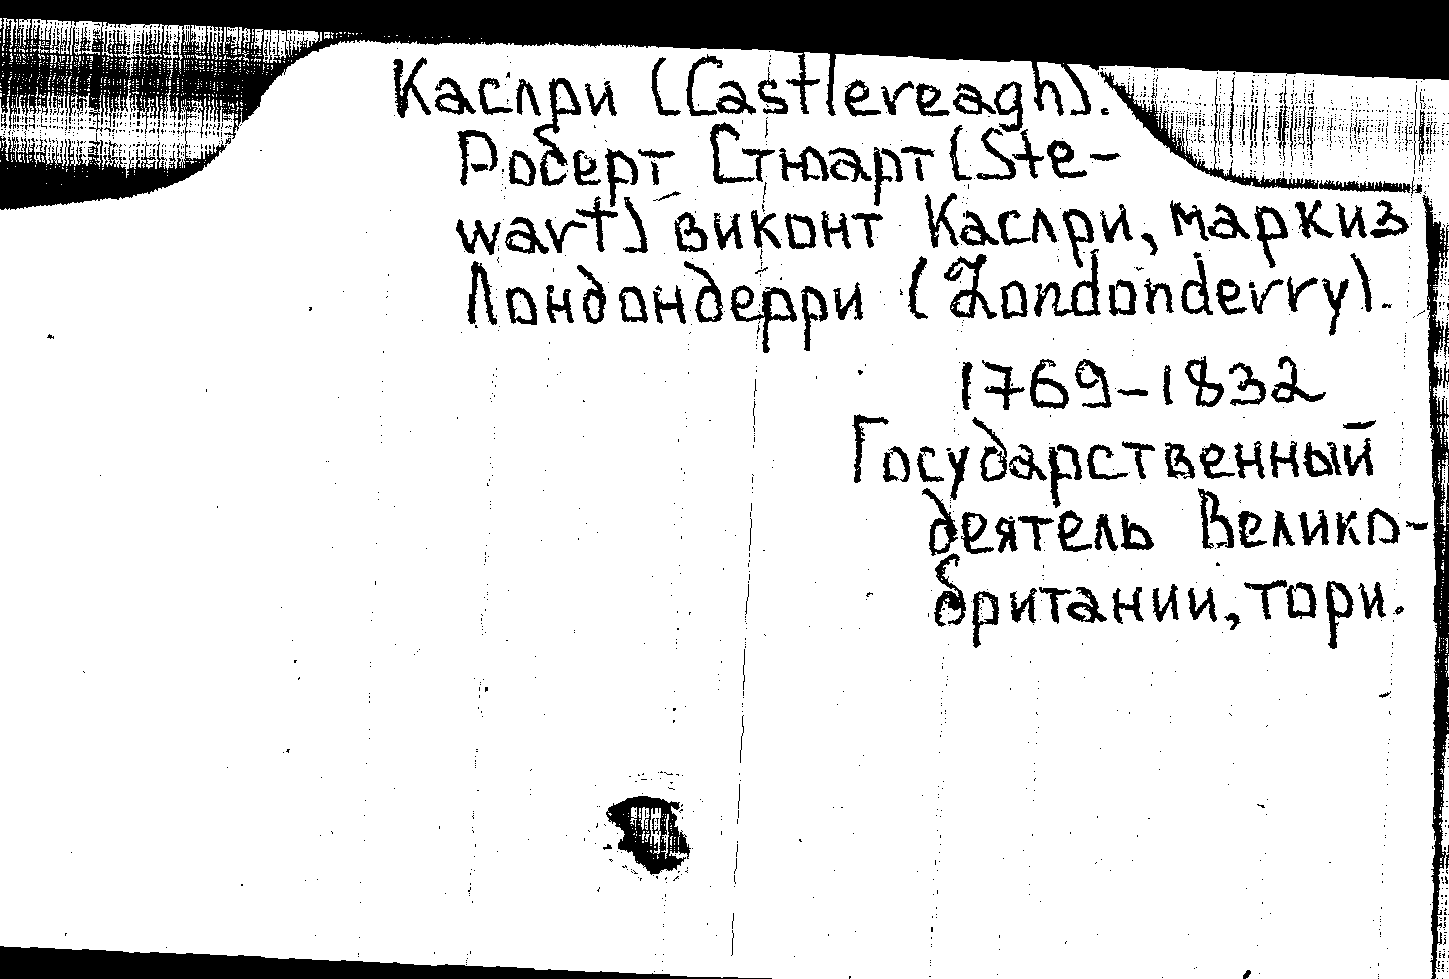 Каслри (Castlereagh).
Роберт Стюарт (Ste-
wart) виконт Каслри, маркиз
Лондондерри (Londonderry).
1769-1832
Государственный
деятель Велико-
британии, тори.